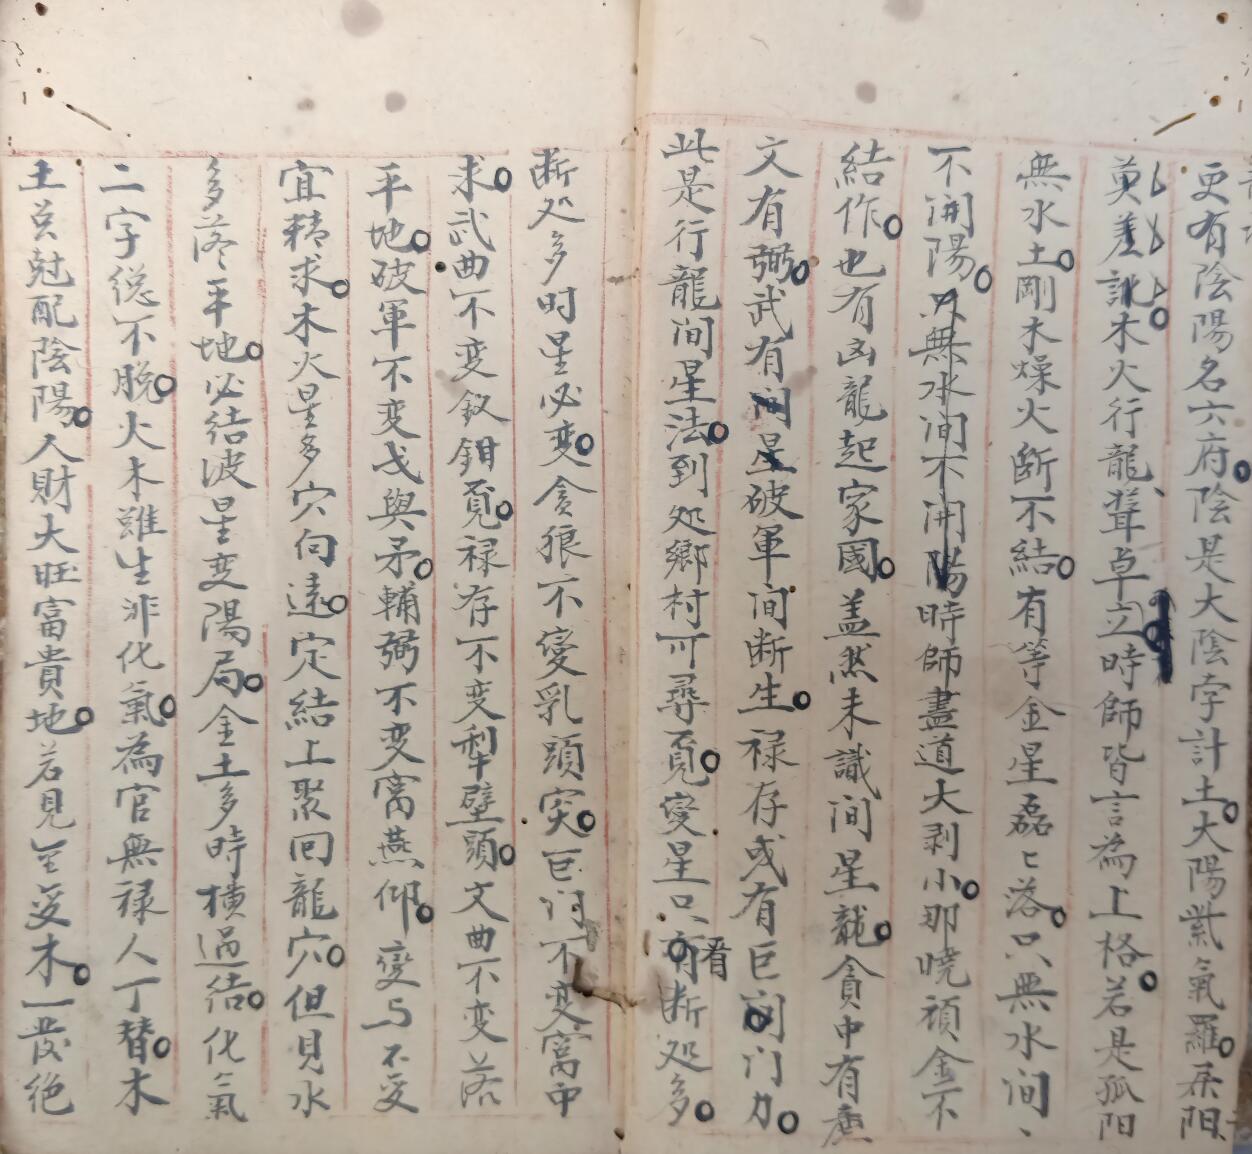 更有陰陽名六府陰是大陰孛計土大陽紫氣羅
莫差訛木火行龍聳卓立時師皆言為上格若是孤阳
無水土剛木燥火断不結有等金星磊〻落只無水间、
不開陽只無水间不開陽時師盡道大剥小那曉頑金不
結作也有凶龍起家國盖然未識间星龍貪中有廉
文有弼武有间星破軍间断生禄存或有巨门力
此是行龍间星法到处鄉村可尋覓变星只看断处多
断处多时星必变貪狼不变乳頭突巨门不变窩中
求武曲不变釵鉗覓禄存不变犁壁頭文曲不变落
平地破軍不变戈與矛輔弼不变窩燕仰变与不变
宜精求木火星多穴向遠定結上聚回龍穴但見水
多落平地必结波星变陽局金土多時横過结化氣
二字総不脱火木雖生非化氣為官無禄人丁替木
土总尅配陰陽人財大旺富貴地若見金受木一發絕